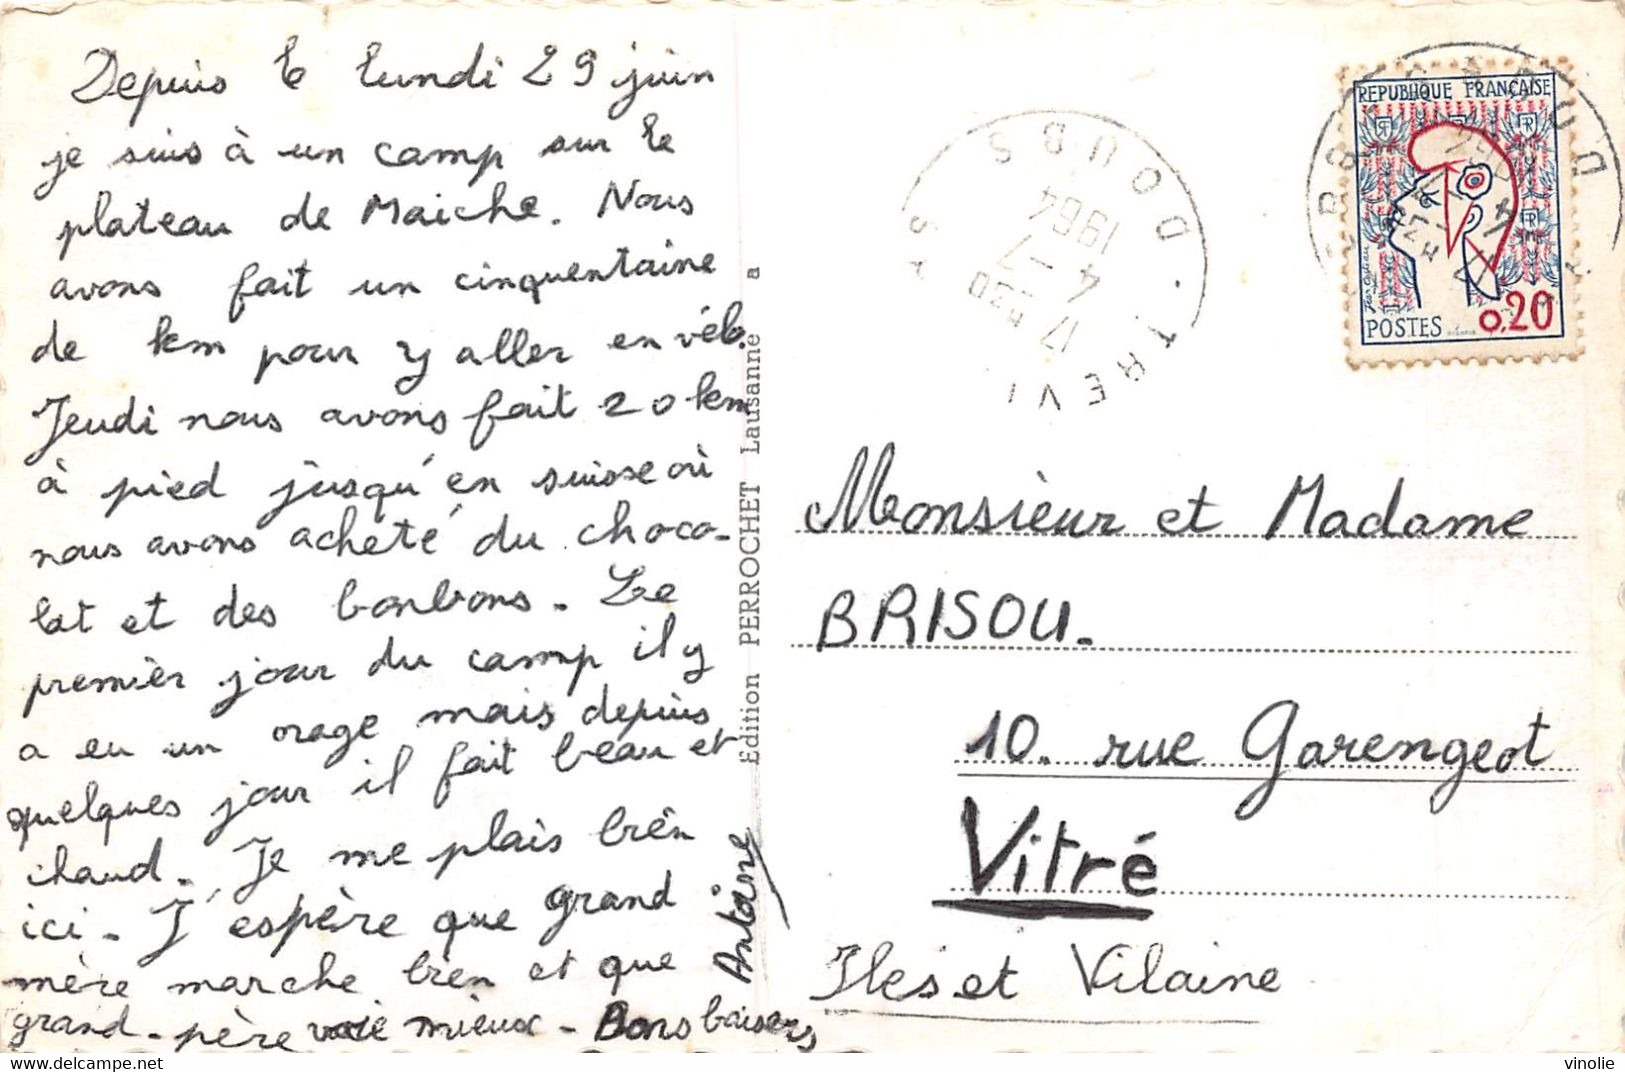 Depuis le lundi 29 juin
je suis à un camp sur le
plateau de Maiche. Nous
avons fait un cinquentaine
de km pour y aller en vélo.
Jeudi nous avons fait 20 km
à pied jusqu'en suisse où
nous avons acheté du choco-
lat et des bonbons. Le
premièr jour du camp il y
a eu un orage mais depuis
quelques jour il fait beau et
chaud. Je me plais bien
ici. J'espère que grand
mère marche bien et que
grand-père voie mieux - Bons baisers
Antoine
Edition PERROCHET Lausanne a
TREVI
DOUBS
17 H30
4 - 7
1964
REPUBLIQUE FRANÇAISE
POSTES 0,20
Monsieur et Madame
BRISOU.
10. rue Garengeot
Vitré
Iles et Vilaine
vinolie